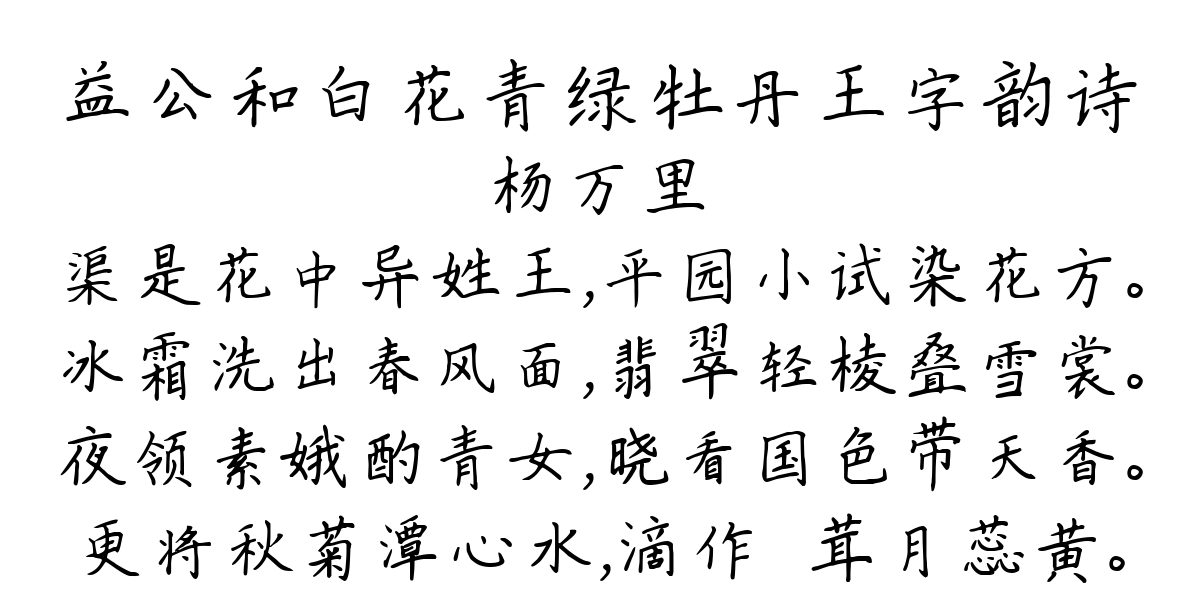 益公和白花青绿牡丹王字韵诗
杨万里
渠是花中异姓王,平园小试染花方。
冰霜洗出春风面,翡翠轻棱叠雪裳。
夜领素娥酌青女,晓看国色带天香。
更将秋菊潭心水,滴作 茸月蕊黄。